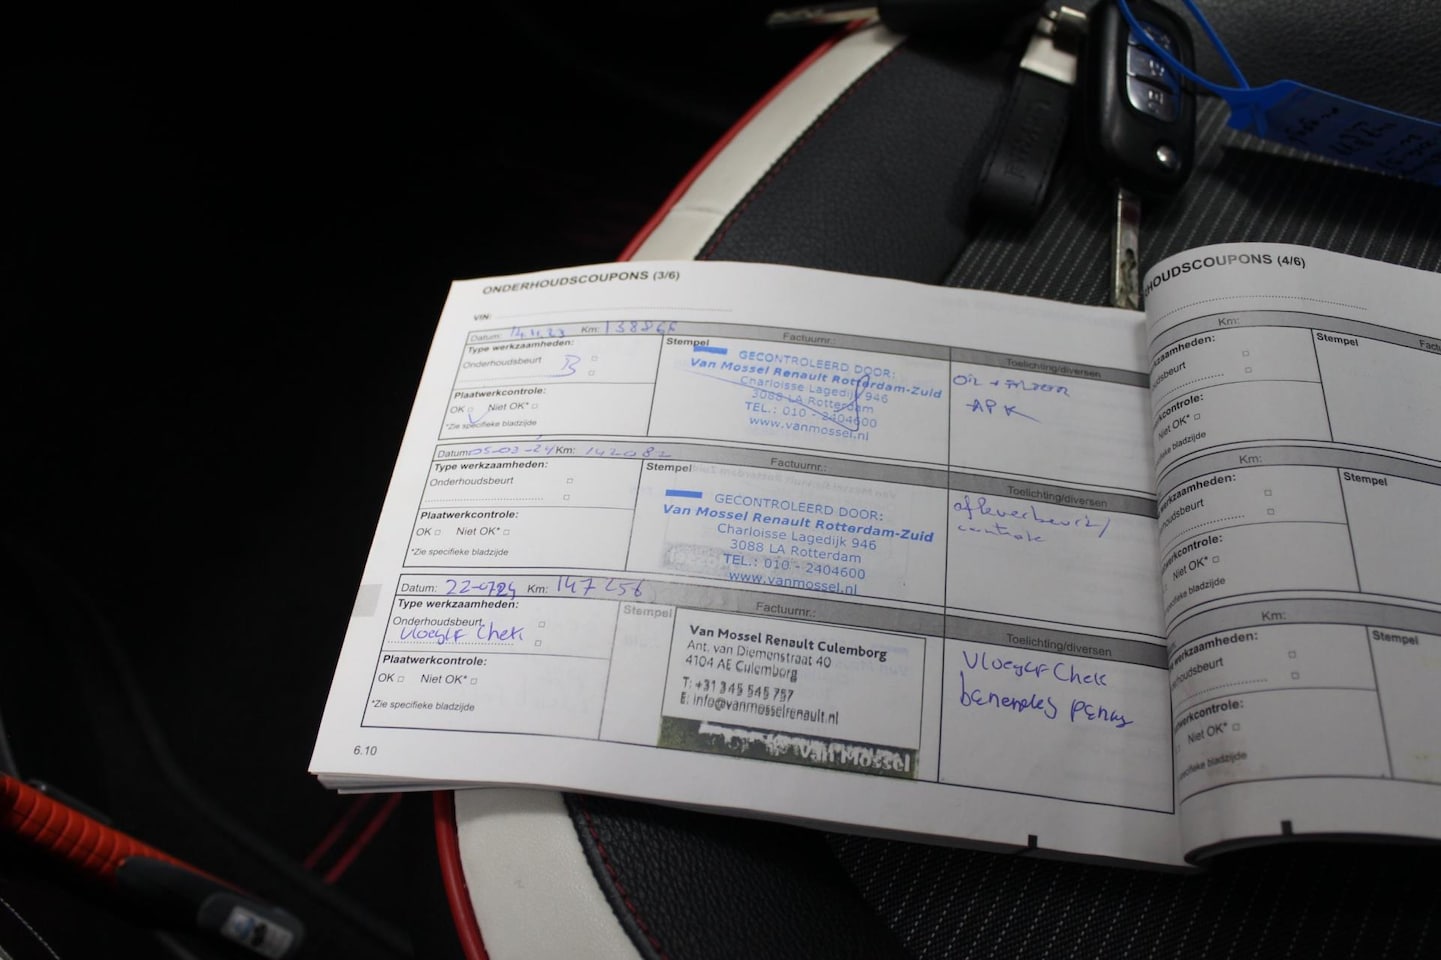 ONDERHOUDSCOUPONS (3/6)
VIN:
Datum: 14.4.23 Km: 138866 Factuurnr.:
Type werkzaamheden:
Onderhoudsbeurt B
Plaatwerkcontrole:
OK Niet OK*
*Zie specifieke bladzijde
Stempel
GECONTROLEERD DOOR:
Van Mossel Renault Rotterdam-Zuid
Charloisse Lagedijk 946
3088 LA Rotterdam
TEL.: 010 - 2404600
www.vanmossel.nl
Toelichting/diversen
APK
Datum: 05-03-24 Km: 142082 Factuurnr.:
Type werkzaamheden:
Onderhoudsbeurt
Plaatwerkcontrole:
OK Niet OK*
*Zie specifieke bladzijde
Stempel
GECONTROLEERD DOOR:
Van Mossel Renault Rotterdam-Zuid
Charloisse Lagedijk 946
3088 LA Rotterdam
TEL.: 010 - 2404600
www.vanmossel.nl
Toelichting/diversen
afleverbeurt/
controle
Datum: Km: 147256 Factuurnr.:
Type werkzaamheden:
Onderhoudsbeurt
Chek
Plaatwerkcontrole:
OK Niet OK*
*Zie specifieke bladzijde
Stempel
Van Mossel Renault Culemborg
Ant. van Diemenstraat 40
4104 AE Culemborg
T: +31 345 545 757
E: info@vanmosselrenault.nl
Van Mossel
Toelichting/diversen
Chek
6.10
HOUDSCOUPONS (4/6)
Km:
kzaamheden:
dsbeurt
kcontrole:
Niet OK*
pecifieke bladzijde
Stempel
Km:
kzaamheden:
dsbeurt
kcontrole:
Niet OK*
specifieke bladzijde
Stempel
Km:
werkzaamheden:
rhoudsbeurt
werkcontrole:
Niet OK*
specifieke bladzijde
Stempel